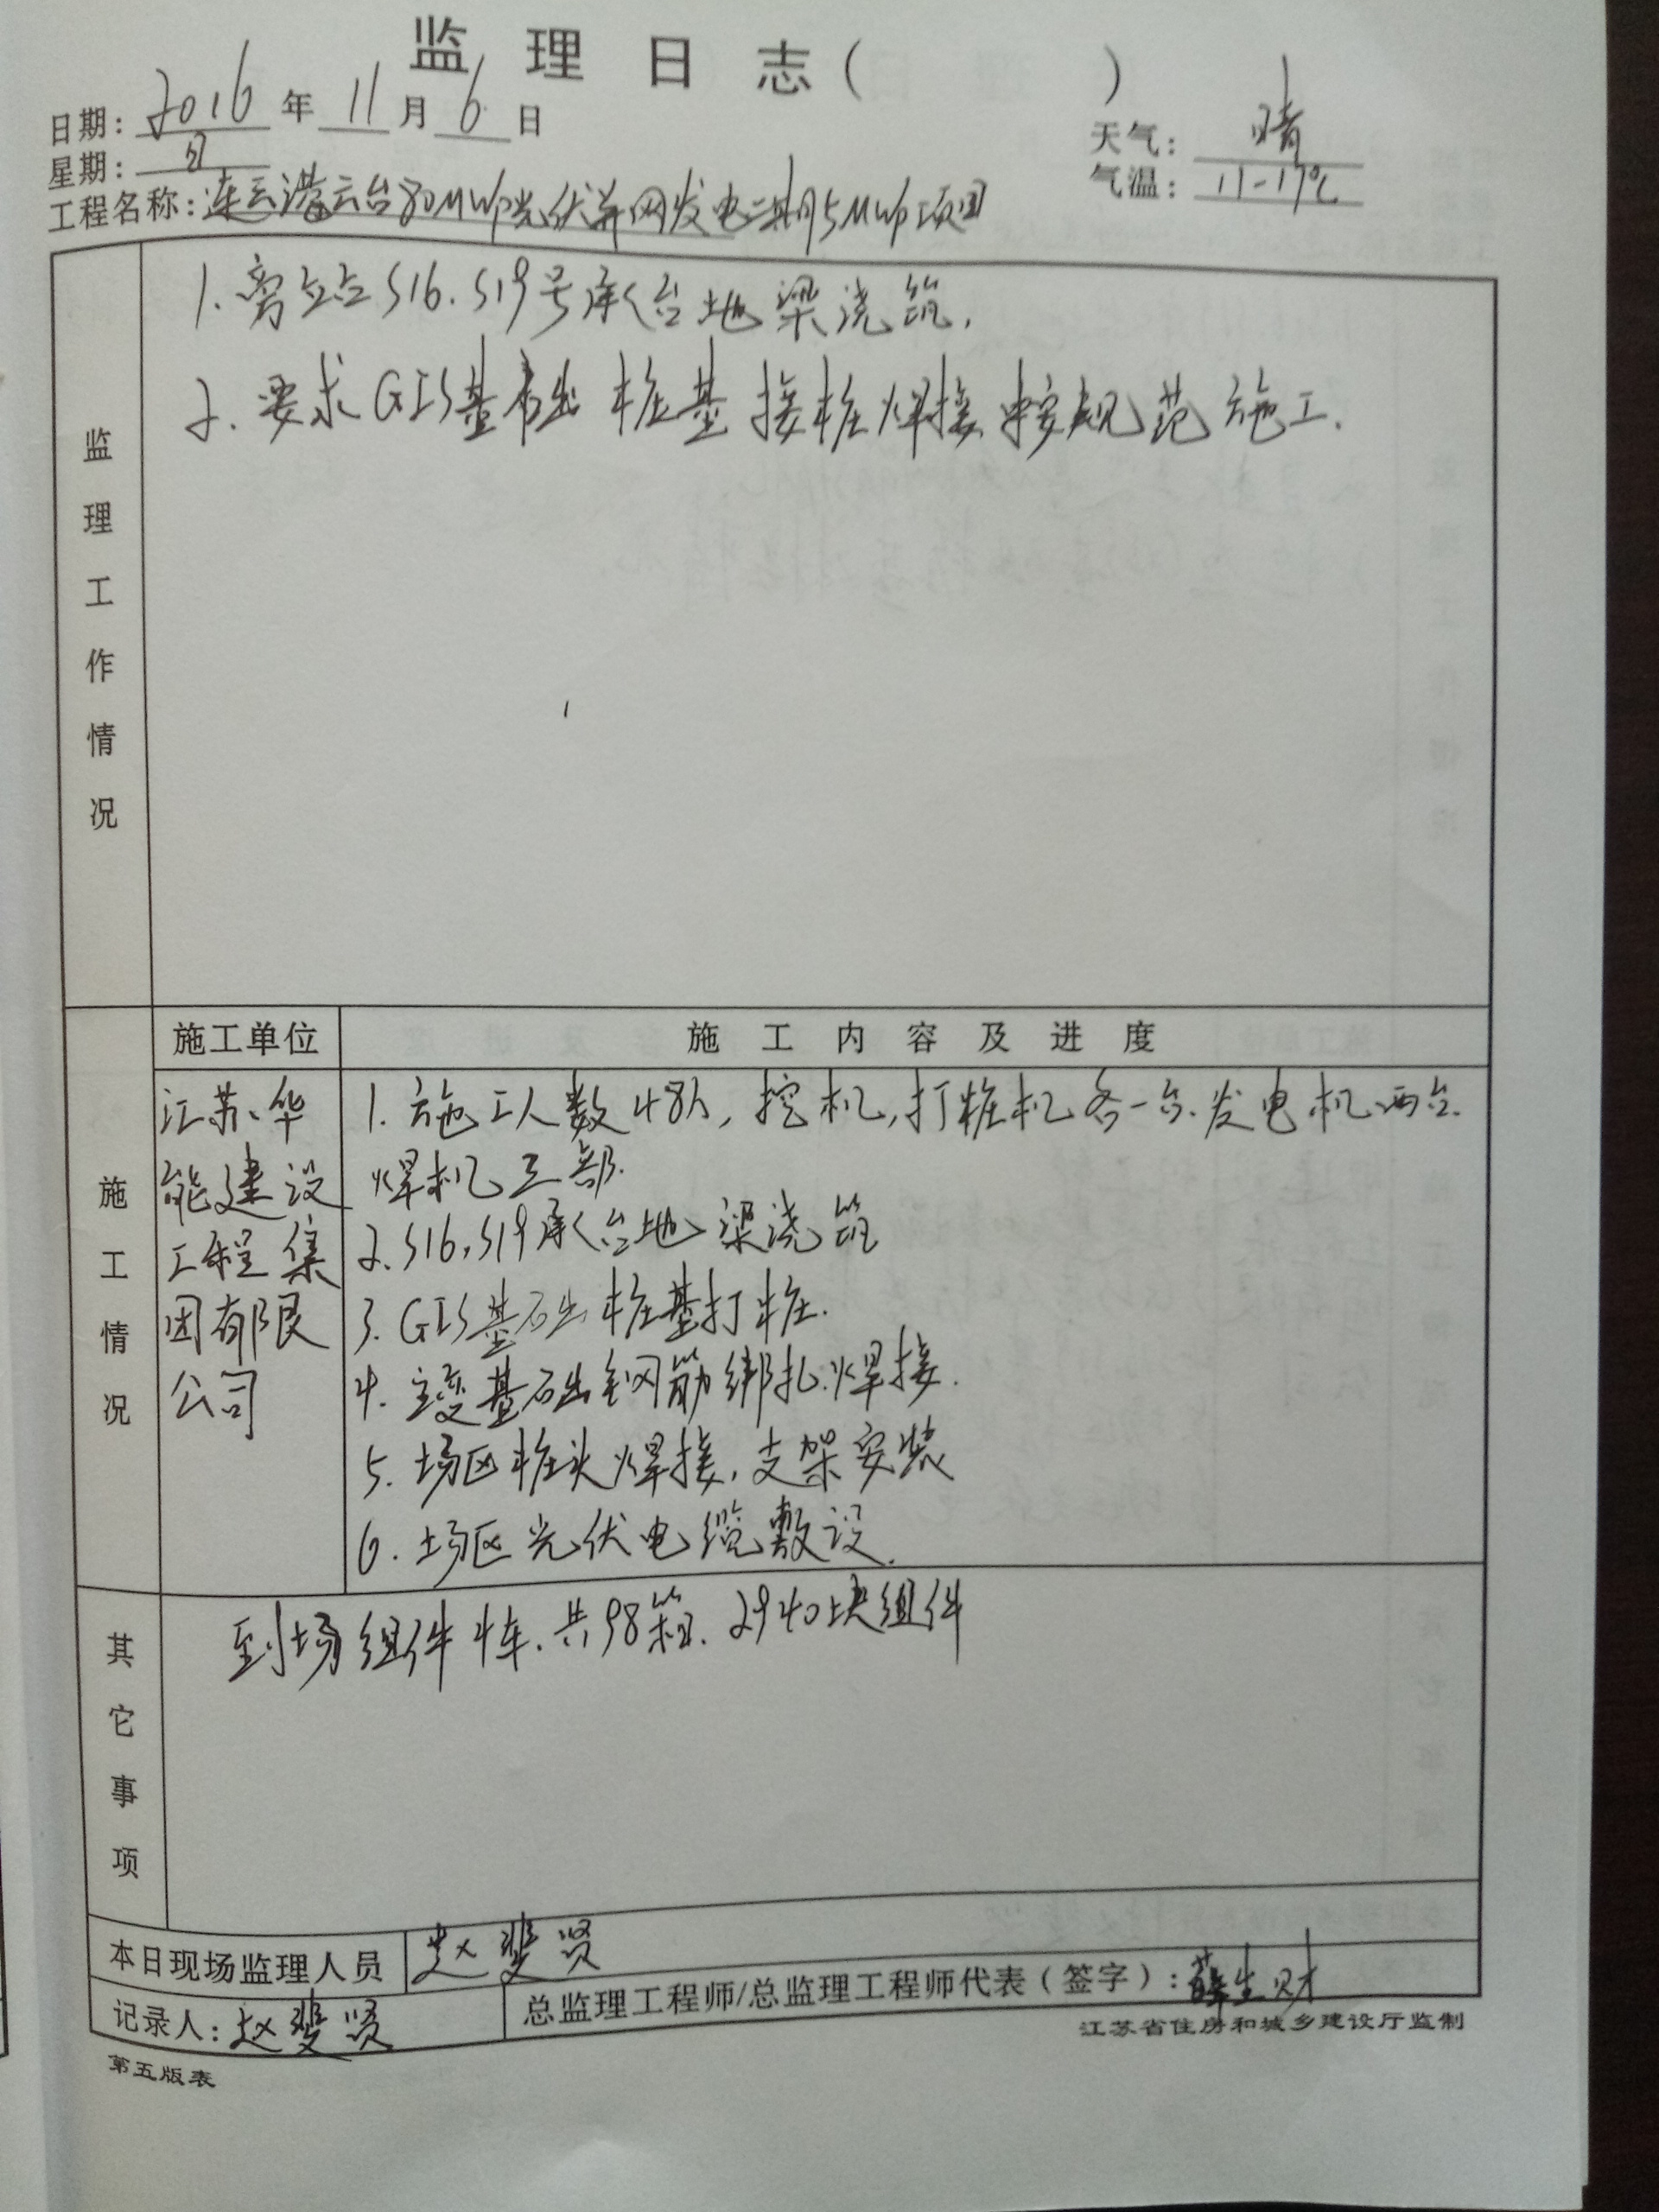 监理日志（ ）
日期：2016年11月6日
天气：晴
星期：日
气温：11-17℃
工程名称：连云港云台80MWp光伏并网发电二期5MWp项目
监理工作情况
1.旁站S16.S19号承台地梁浇筑.
2.要求GIS基础桩基接桩焊接按规范施工.
施工情况
施工单位
施工内容及进度
江苏华
能建设
工程集
团有限
公司
1.施工人数48人,挖机,打桩机各一台.发电机两台.
焊机三部.
2.S16,S19承台地梁浇筑
3.GIS基础桩基打桩.
4.主变基础钢筋绑扎.焊接.
5.场区桩头焊接,支架安装
6.场区光伏电缆敷设.
其它事项
到场组件4车.共98箱.2940块组件
本日现场监理人员 赵斐贤
记录人：赵斐贤
总监理工程师/总监理工程师代表（签字）：薛生财
江苏省住房和城乡建设厅监制
第五版表